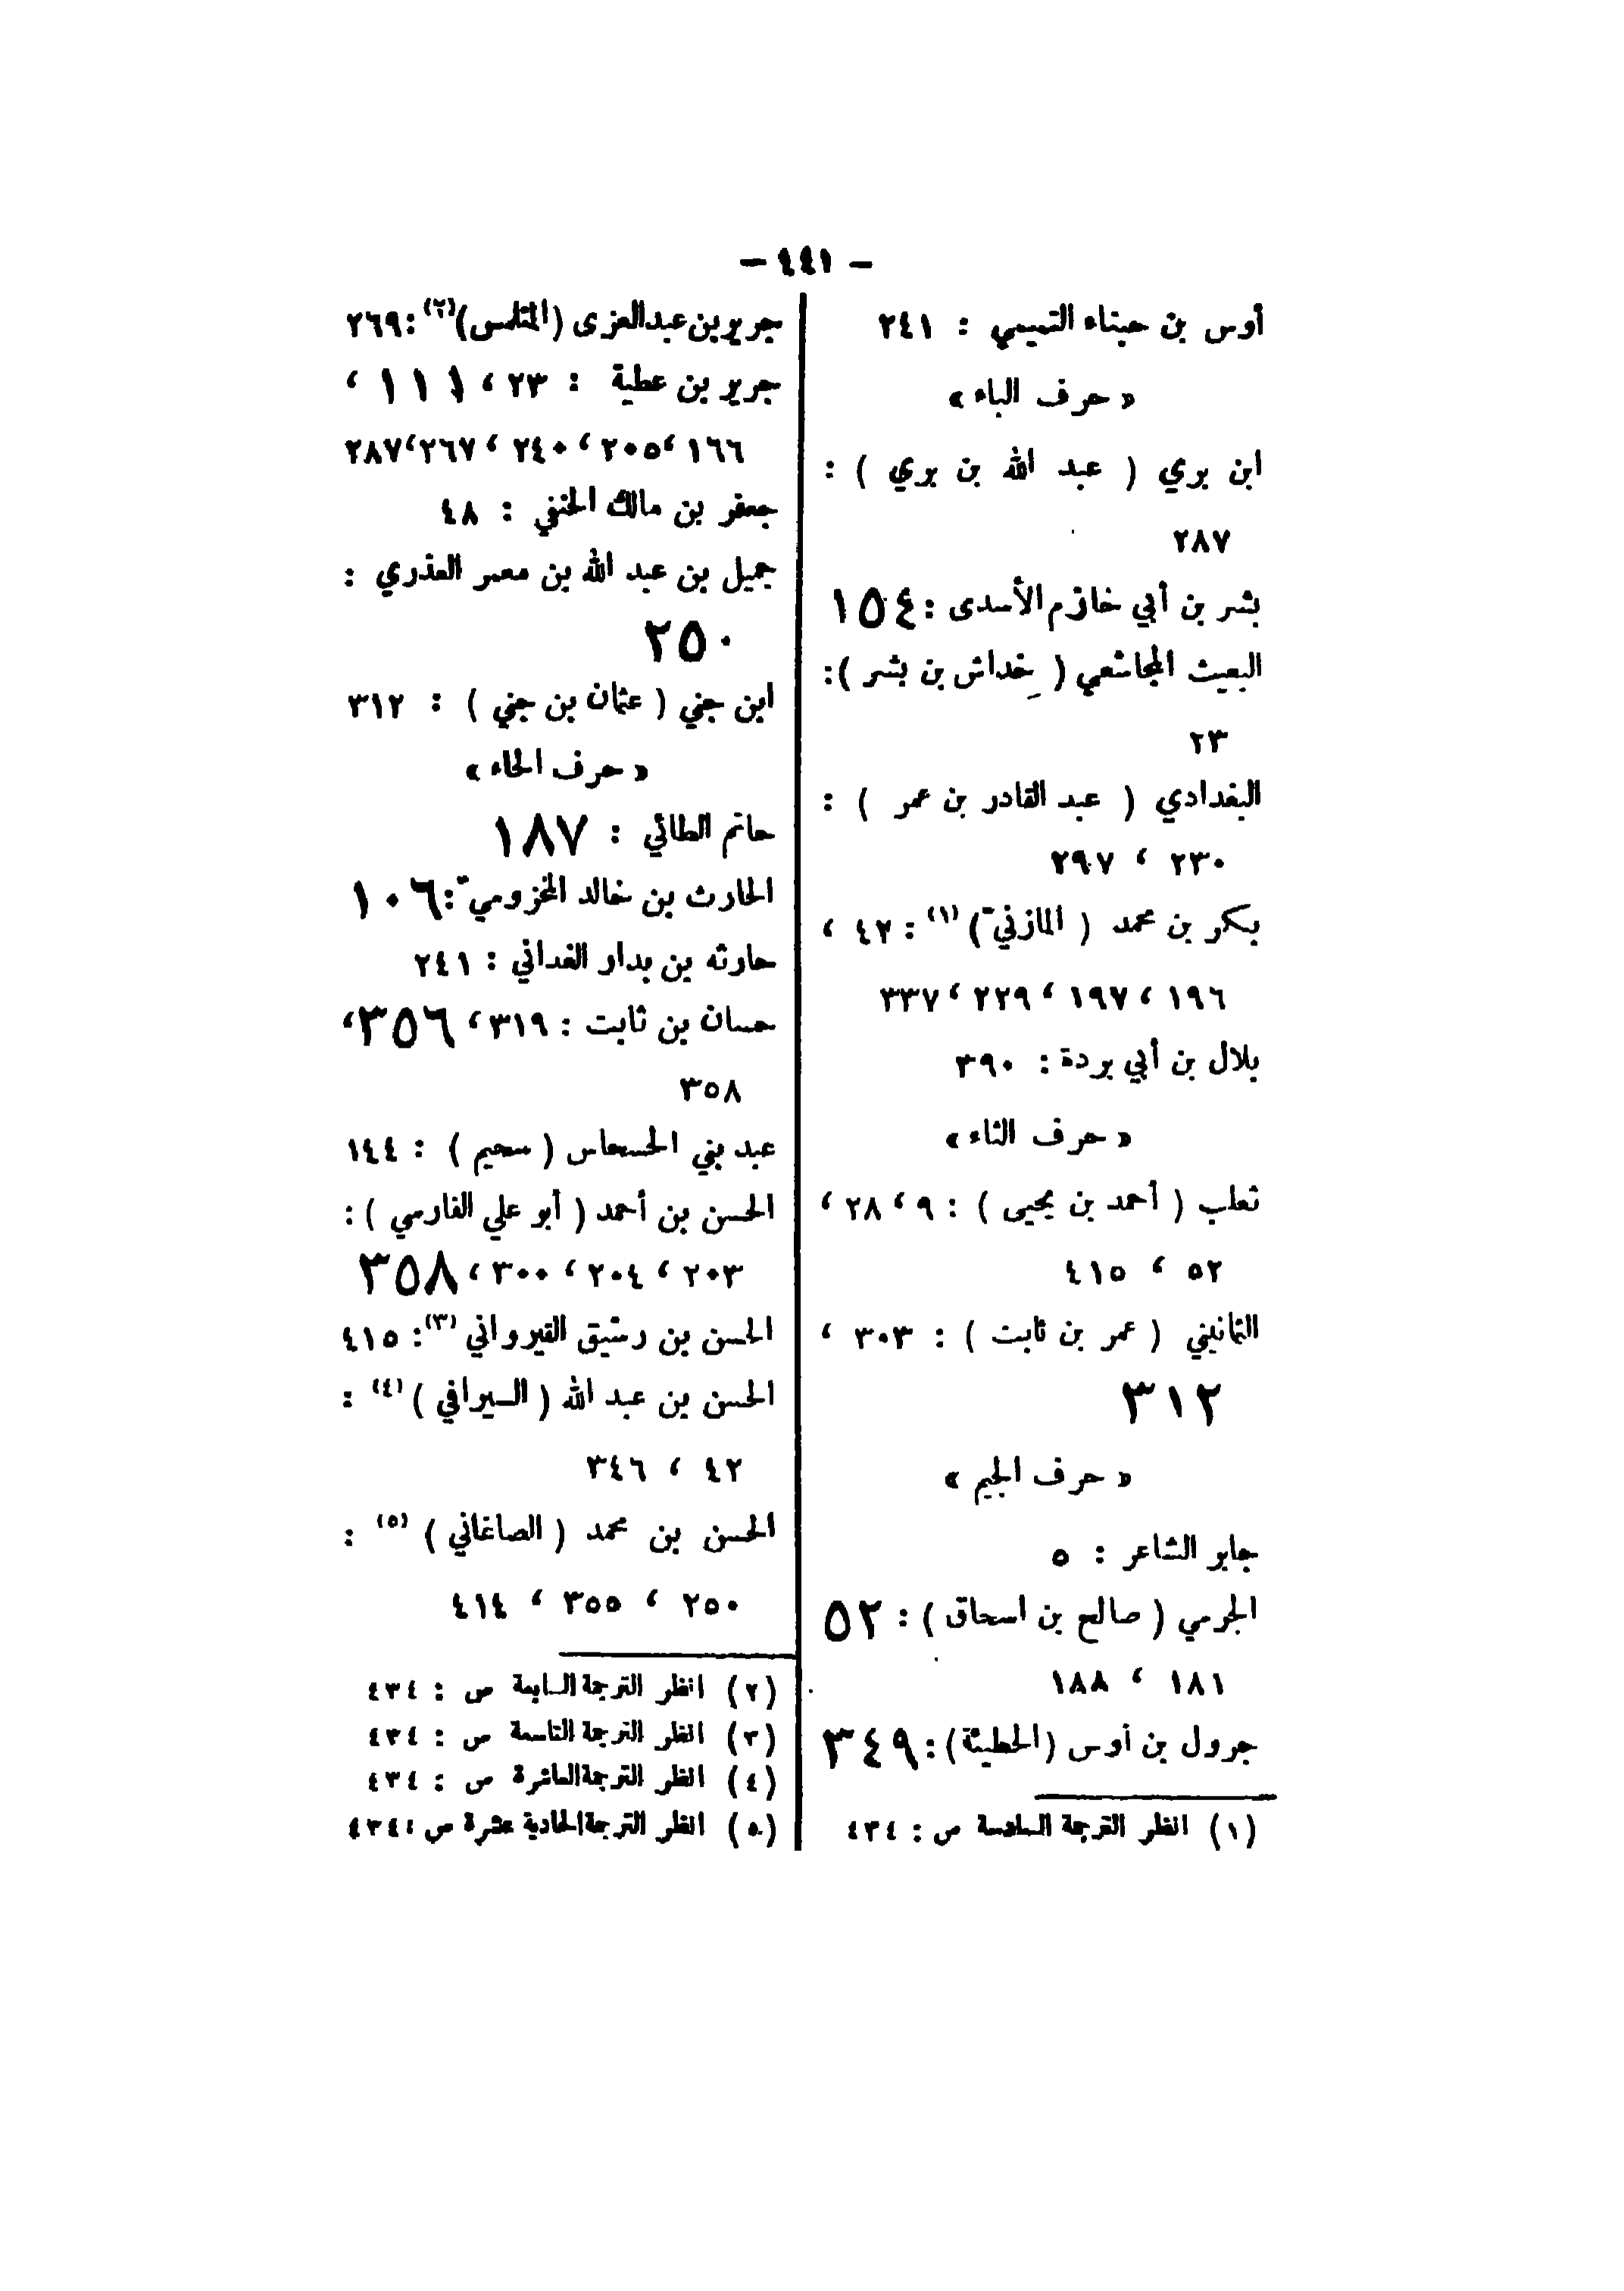 - ٤٤١ -
أوس بن حبناء التميمي : ٢٤١
« حرف الباء »
ابن بري ( عبد الله بن بري ) :
٢٨٧
بشر بن أبي خازم الأسدى : ١٥٤
البعيث المجاشعي ( خداش بن بشر ) :
٢٣
البغدادي ( عبد القادر بن عمر ) :
٢٣٠ ، ٢٩٧
بكر بن محمد ( المازنيّ ) (١) : ٤٢ ،
١٩٦ ، ١٩٧ ، ٢٢٩ ، ٣٣٧
بلال بن أبي بردة : ٣٩٠
« حرف الثاء »
ثعلب ( أحمد بن يحيى ) : ٩ ، ٢٨ ،
٥٢ ، ٤١٥
الثمانيني ( عمر بن ثابت ) : ٣٠٣ ،
٣١٢
« حرف الجيم »
جابر الشاعر : ٥
الجرمي ( صالح بن اسحاق ) : ٥٢
١٨١ ، ١٨٨
جرول بن أوس ( الحطيئة ) : ٣٤٩
(١) انظر الترجمة السادسة ص : ٤٣٤
جرير بن عبد العزى ( المتلمس ) (٢) : ٢٦٩
جرير بن عطية : ٢٣ ، ١١١ ،
١٦٦ ، ٢٠٥ ، ٢٤٠ ، ٢٦٧ ، ٢٨٧
جعفر بن مالك الحنفي : ٤٨
جميل بن عبد الله بن معمر العذري :
٢٥٠
ابن جني ( عثمان بن جني ) : ٣١٢
« حرف الحاء »
حاتم الطائي : ١٨٧
الحارث بن خالد المخزوميّ : ١٠٦
حارثه بن بدار الغداني : ٢٤١
حسان بن ثابت : ٣١٩ ، ٣٥٦ ،
٣٥٨
عبد بني الحسحاس ( سحيم ) : ١٤٤
الحسن بن أحمد ( أبو علي الفارسي ) :
٢٠٣ ، ٢٠٤ ، ٣٠٠ ، ٣٥٨
الحسن بن رشيق القيرواني (٣) : ٤١٥
الحسن بن عبد الله ( السيرافي ) (٤) :
٤٢ ، ٣٤٦
الحسن بن محمد ( الصاغاني ) (٥) :
٢٥٠ ، ٣٥٥ ، ٤١٤
(٢) انظر الترجمة السابعة ص : ٤٣٤
(٣) انظر الترجمة التاسعة ص : ٤٣٤
(٤) انظر الترجمة العاشرة ص : ٤٣٤
(٥) انظر الترجمة الحادية عشرة ص : ٤٣٤